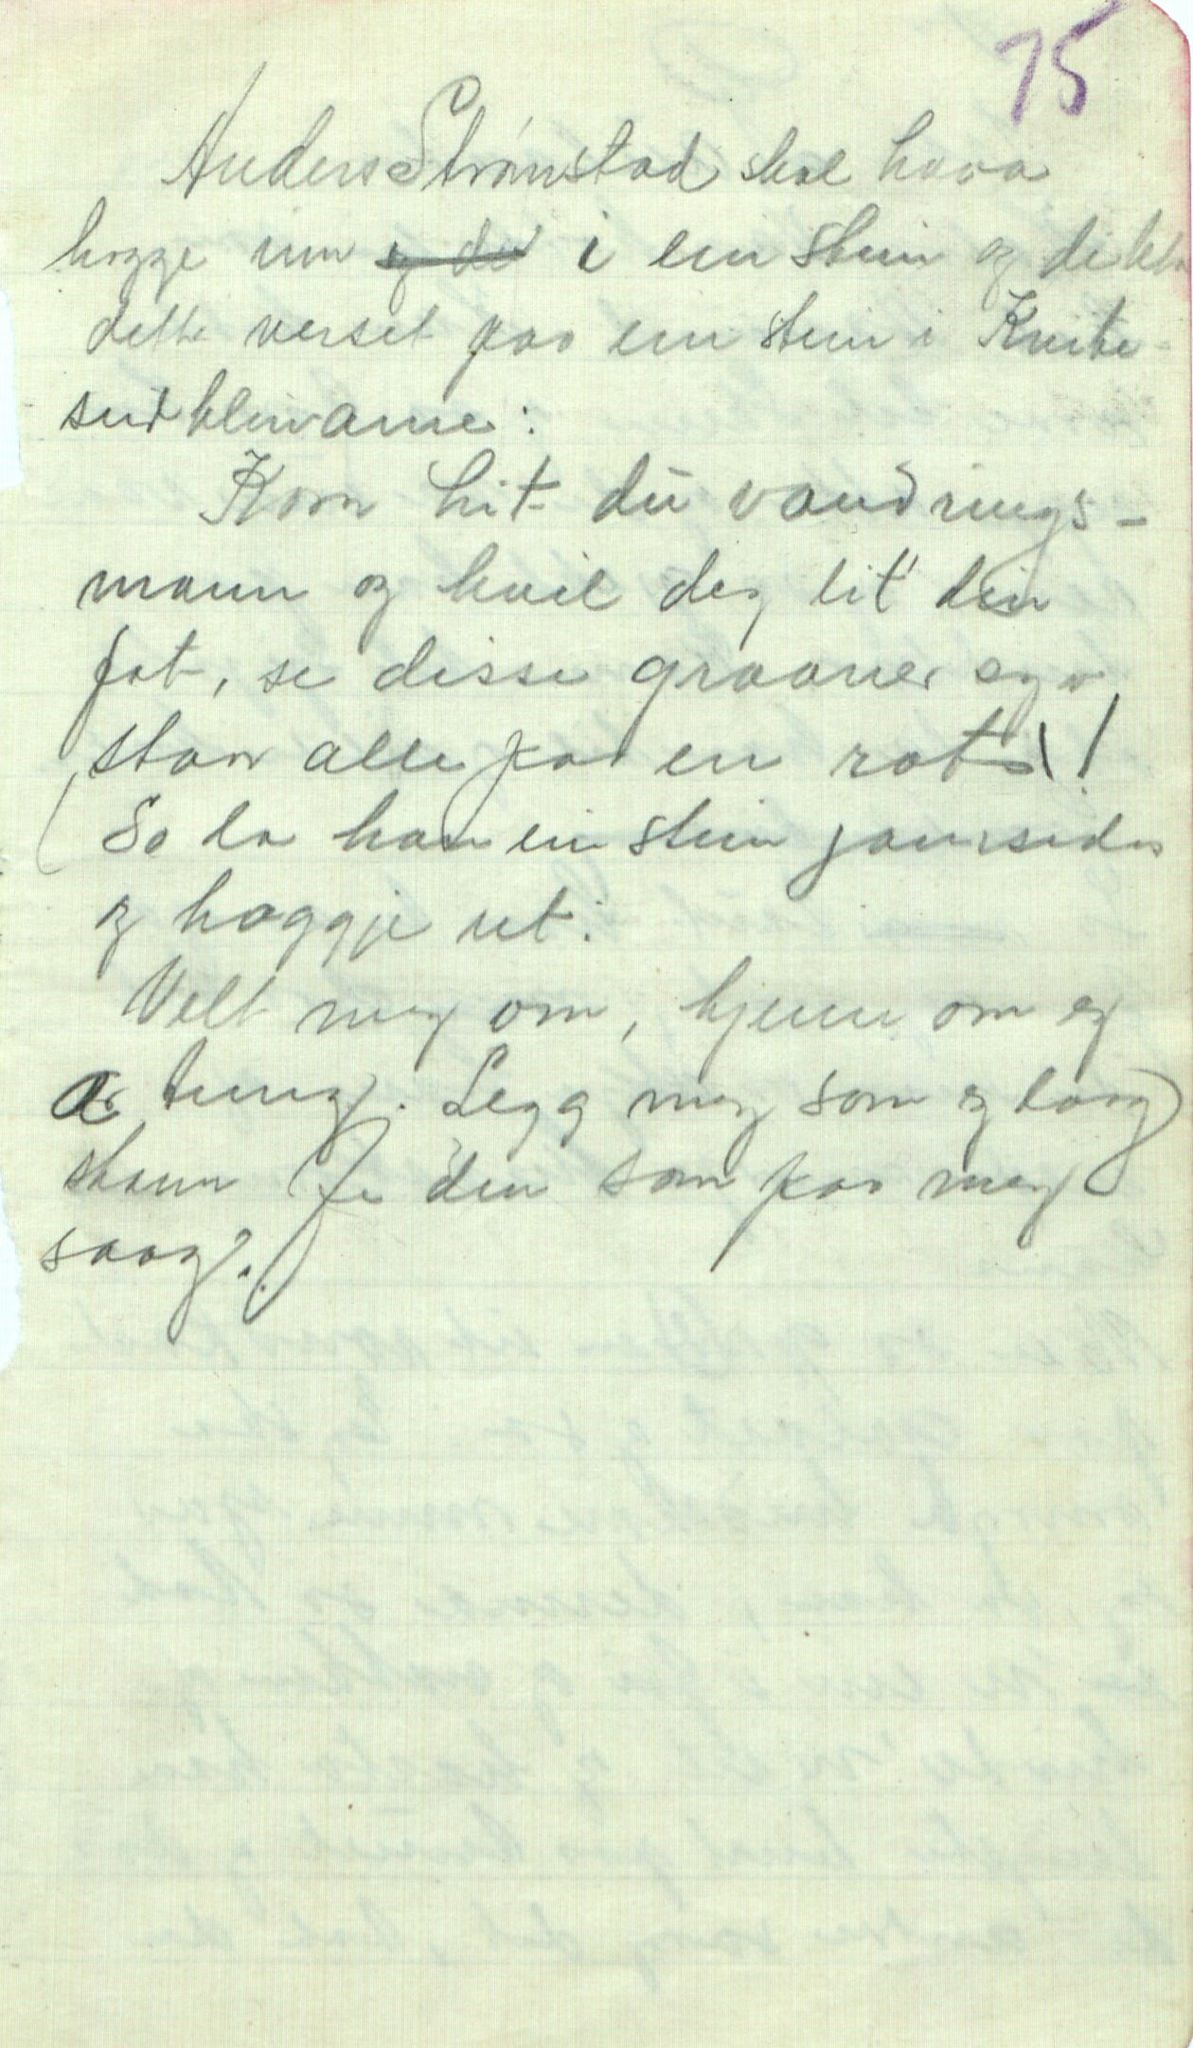 75
Anders Strømstad skal hava
hogge inn og der i ein stein og dikta
dette verset paa ein stein i
Kom hit du vandrings-
mann og kvil deg lit din
fot, se disse graaner syv
staar alle paa en rot!
So la han ein stein jamsides
og hoggje ut:
Velt meg om, kjenn om eg
æ tung. Legg meg som eg laag
skann fe den som paa meg
saag.